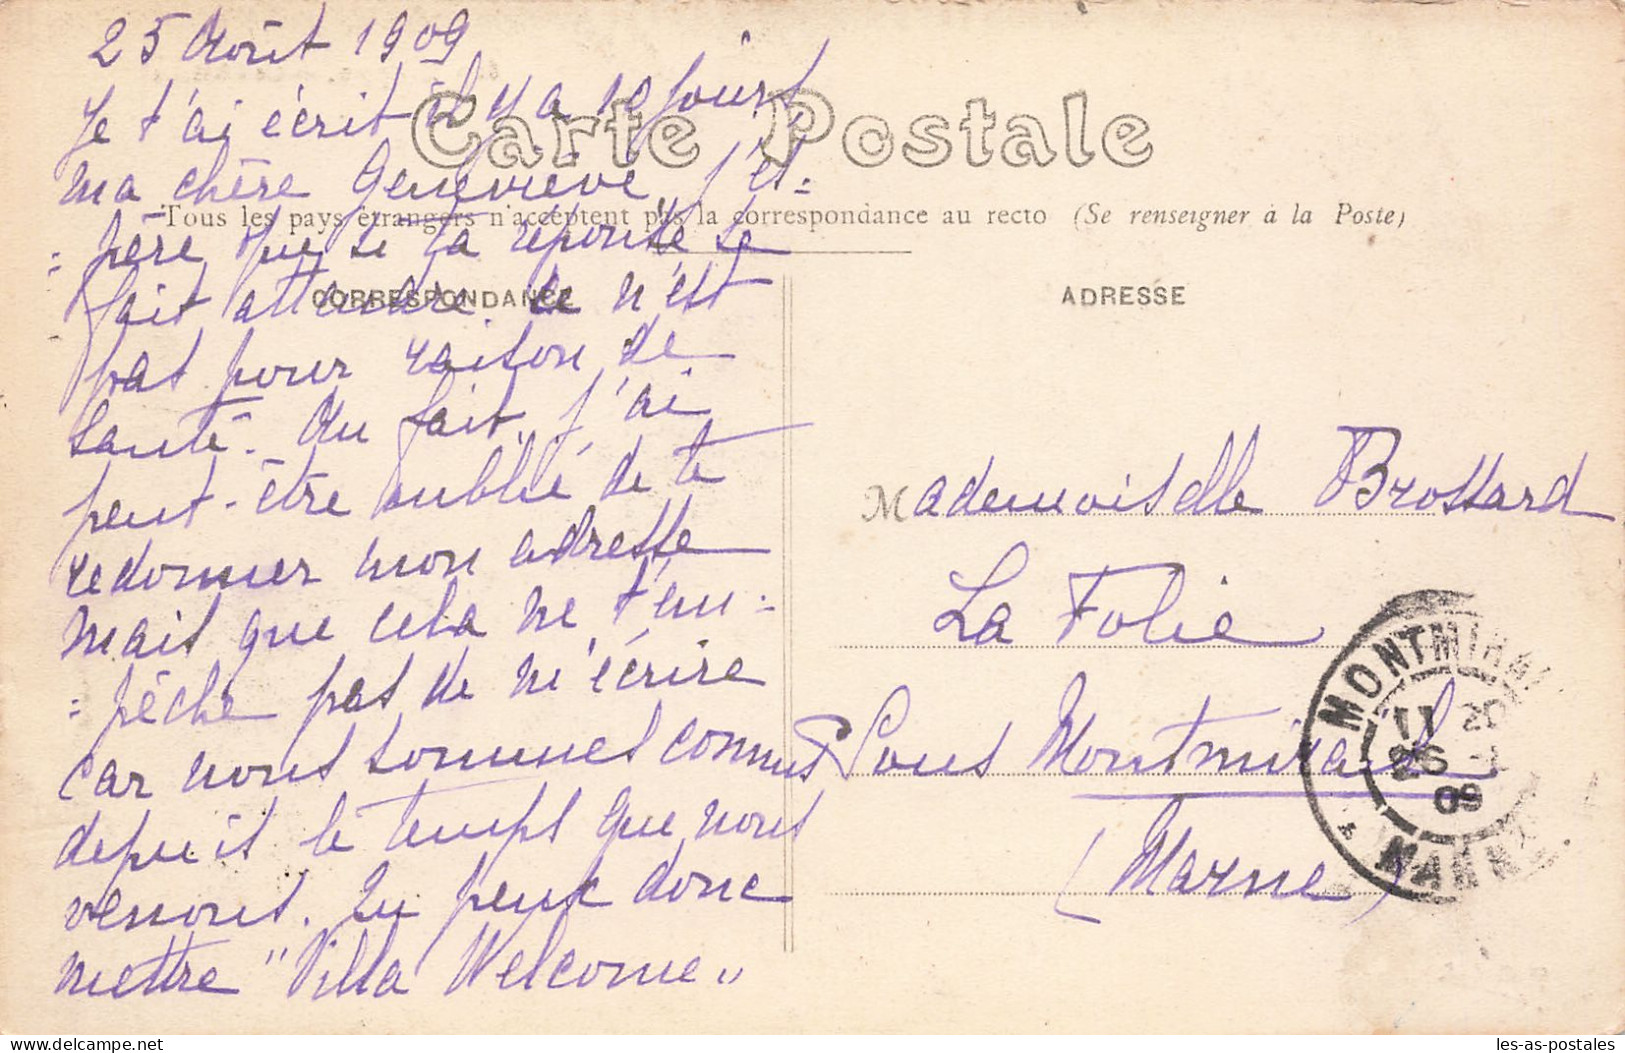 25 Août 1909
Je t'ai écrit il y a 10 jours
Carte Postale
ma chère Geneviève, j'es=
Tous les pays étrangers n'acceptent pas la correspondance au recto (Se renseigner à la Poste)
=père que si ta réponse se
fait attendre ce n'est
CORRESPONDANCE
ADRESSE
pas pour raison de
santé. Au fait, j'ai
peut-être oublié de te
redonner mon adresse
mais que cela ne t'em=
=pêche pas de m'écrire
car nous sommes connus
depuis le temps que nous
venons. Tu peux donc
mettre "Villa Welcome"
Mademoiselle Brossard
La Folie
Sous Montmirail
(Marne)
MONTMIRAIL
11 20
26 -
09
MARNE
les-as-postales